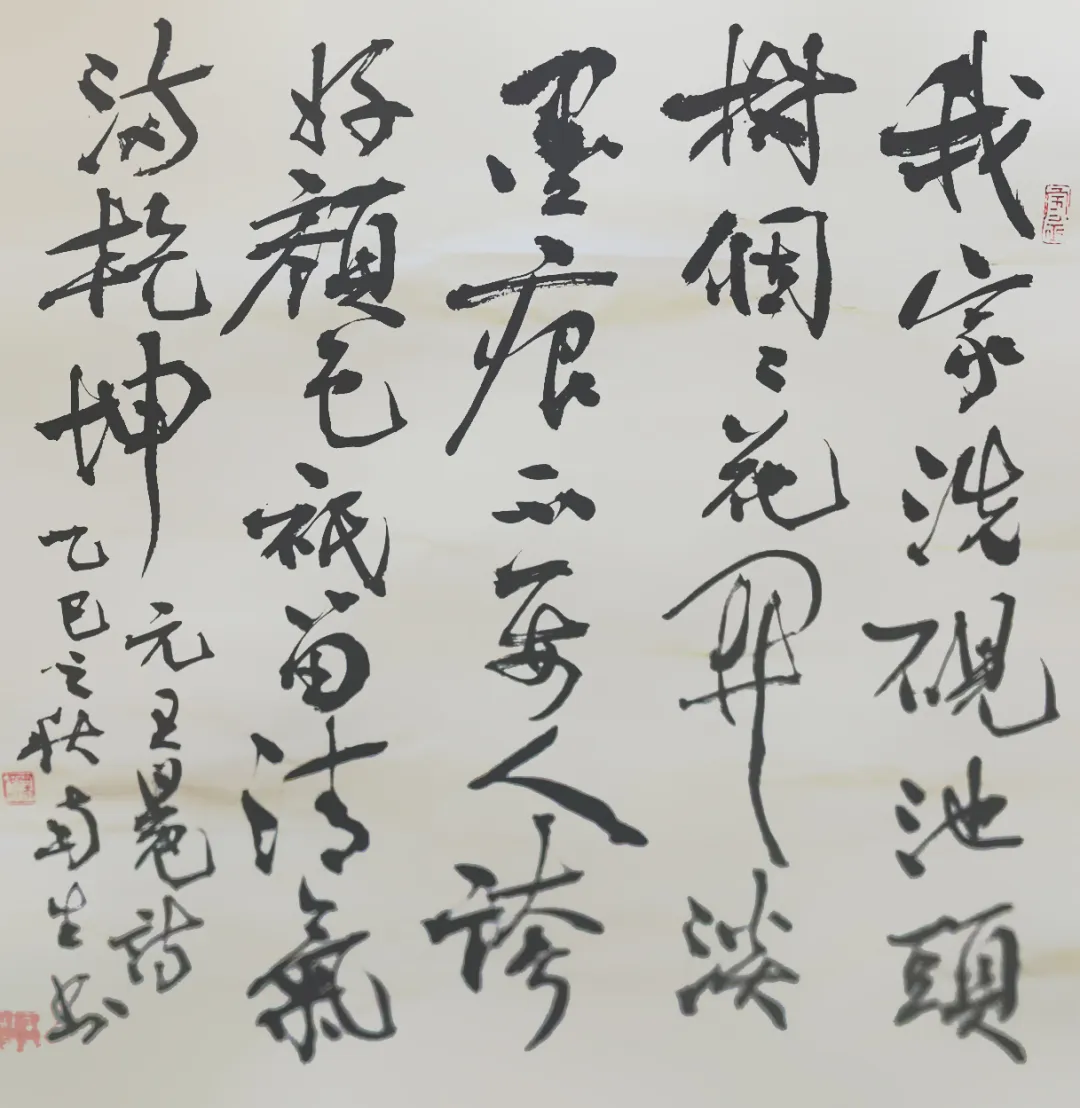 我家洗硯池頭
樹個々花開淡
墨痕不要人誇
好顏色祇留清氣
滿乾坤 元王冕詩
乙巳之秋南生书